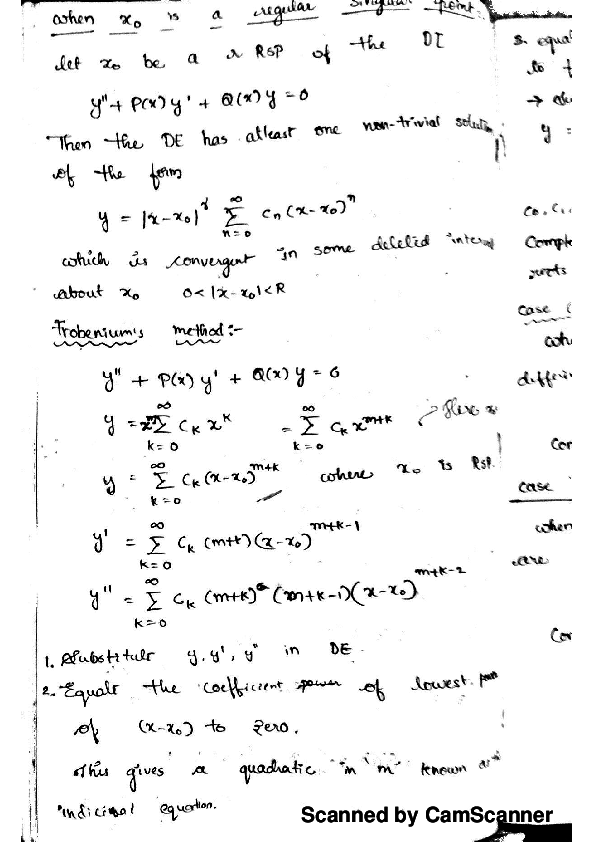 when x₀ is a regular singular point.
let x₀ be a r RSP of the DI
y'' + P(x) y' + Q(x) y = 0
Then the DE has atleast one non-trivial solution
of the form
y = |x-x₀|^r ∑_{n=0}^{∞} cₙ (x-x₀)ⁿ
which is convergent in some deleted interval
about x₀ 0 < |x-x₀| < R
Frobenium's method:-
y'' + P(x) y' + Q(x) y = 0
y = x^m ∑_{k=0}^{∞} C_k x^k = ∑_{k=0}^{∞} C_k x^{m+k} Here
y = ∑_{k=0}^{∞} C_k (x-x₀)^{m+k} where x₀ is RSP.
y' = ∑_{k=0}^{∞} C_k (m+k) (x-x₀)^{m+k-1}
y'' = ∑_{k=0}^{∞} C_k (m+k) (m+k-1) (x-x₀)^{m+k-2}
1. Substitute y, y', y'' in DE
2. Equate the coefficient power of lowest
of (x-x₀) to zero.
This gives a quadratic in 'm' known as
indicial equation.
s. equa
to f
y =
co, c₁,
Comple
case
differ
Cor
case
when
are
Cor
Scanned by CamScanner